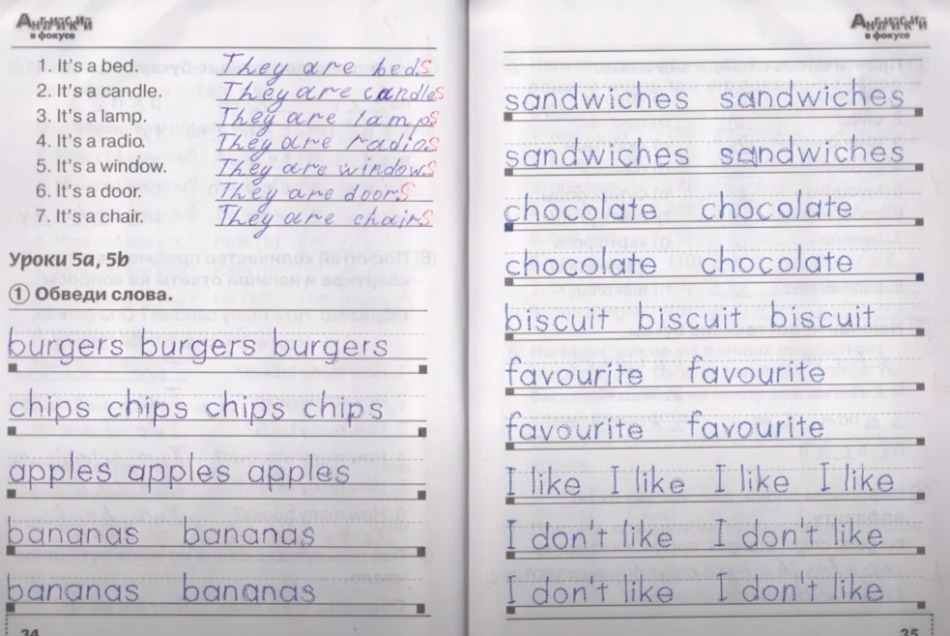 Английский
в фокусе
1. It's a bed. They are beds
2. It's a candle. They are candles
3. It's a lamp. They are lamps
4. It's a radio. They are radios
5. It's a window. They are windows
6. It's a door. They are doors
7. It's a chair. They are chairs
Уроки 5a, 5b
1 Обведи слова.
burgers burgers burgers
chips chips chips chips
apples apples apples
bananas bananas
bananas bananas
34
Английский
в фокусе
sandwiches sandwiches
sandwiches sandwiches
chocolate chocolate
chocolate chocolate
biscuit biscuit biscuit
favourite favourite
favourite favourite
I like I like I like I like
I don't like I don't like
I don't like I don't like
35